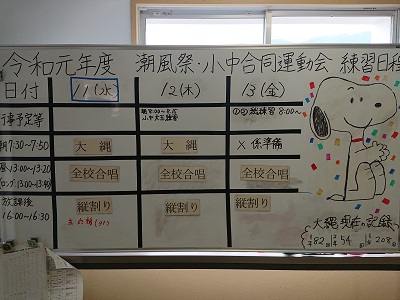 令和元年度 潮風祭・小中合同運動会 練習日程
日付 11(水) 12(木) 13(金)
行事予定等 ①②総練習 8:00〜
朝7:30〜7:50 大縄 大縄 × 係準備
昼13:00〜13:20 全校合唱 全校合唱 全校合唱
ロング13:00〜13:40
放課後 縦割り 縦割り 縦割り
16:00〜16:30
大縄 現在の記録
82回 54 208回